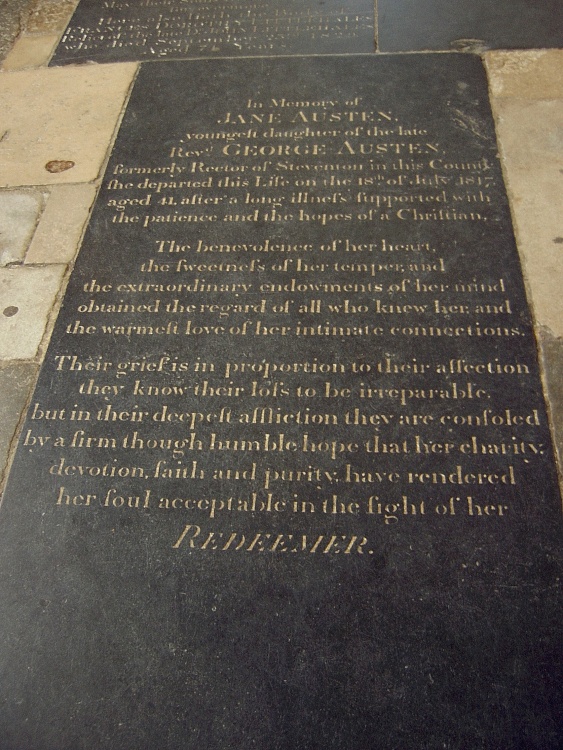 May
who
Aged 74 Years
In Memory of
JANE AUSTEN,
youngeſt daughter of the late
Revd GEORGE AUSTEN,
formerly Rector of Steventon in this County
ſhe departed this Life on the 18th of July 1817,
aged 41, after a long illneſs ſupported with
the patience and the hopes of a Chriſtian.
The benevolence of her heart,
the ſweetneſs of her temper, and
the extraordinary endowments of her mind
obtained the regard of all who knew her, and
the warmeſt love of her intimate connections.
Their grief is in proportion to their affection
they know their loſs to be irreparable,
but in their deepeſt affliction they are conſoled
by a firm though humble hope that her charity,
devotion, faith and purity, have rendered
her ſoul acceptable in the ſight of her
REDEEMER.